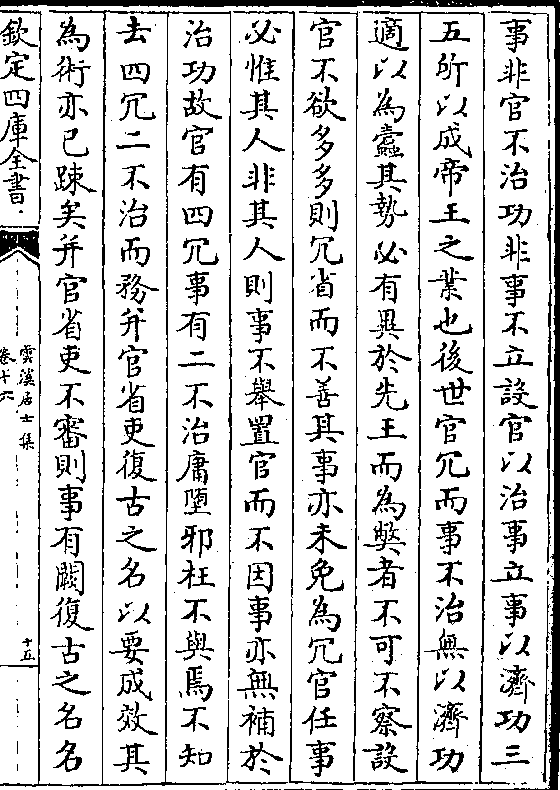 事非官不治功非事不立設官以治事立事以濟功三
五所以成帝王之業也後世官冗而事不治無以濟功
適以為蠧其勢必有異於先王而為弊者不可不察設
官不欲多多則冗省而不善其事亦未免為冗官任事
必惟其人非其人則事不舉置官而不因事亦無補於
治功故官有四冗事有二不治庸墮邪枉不與焉不知
去四冗二不治而務并官省吏復古之名以要成效其
為術亦已踈矣并官省吏不審則事有闕復古之名名
欽定四庫全書
雲溪居士集
卷十六
十五